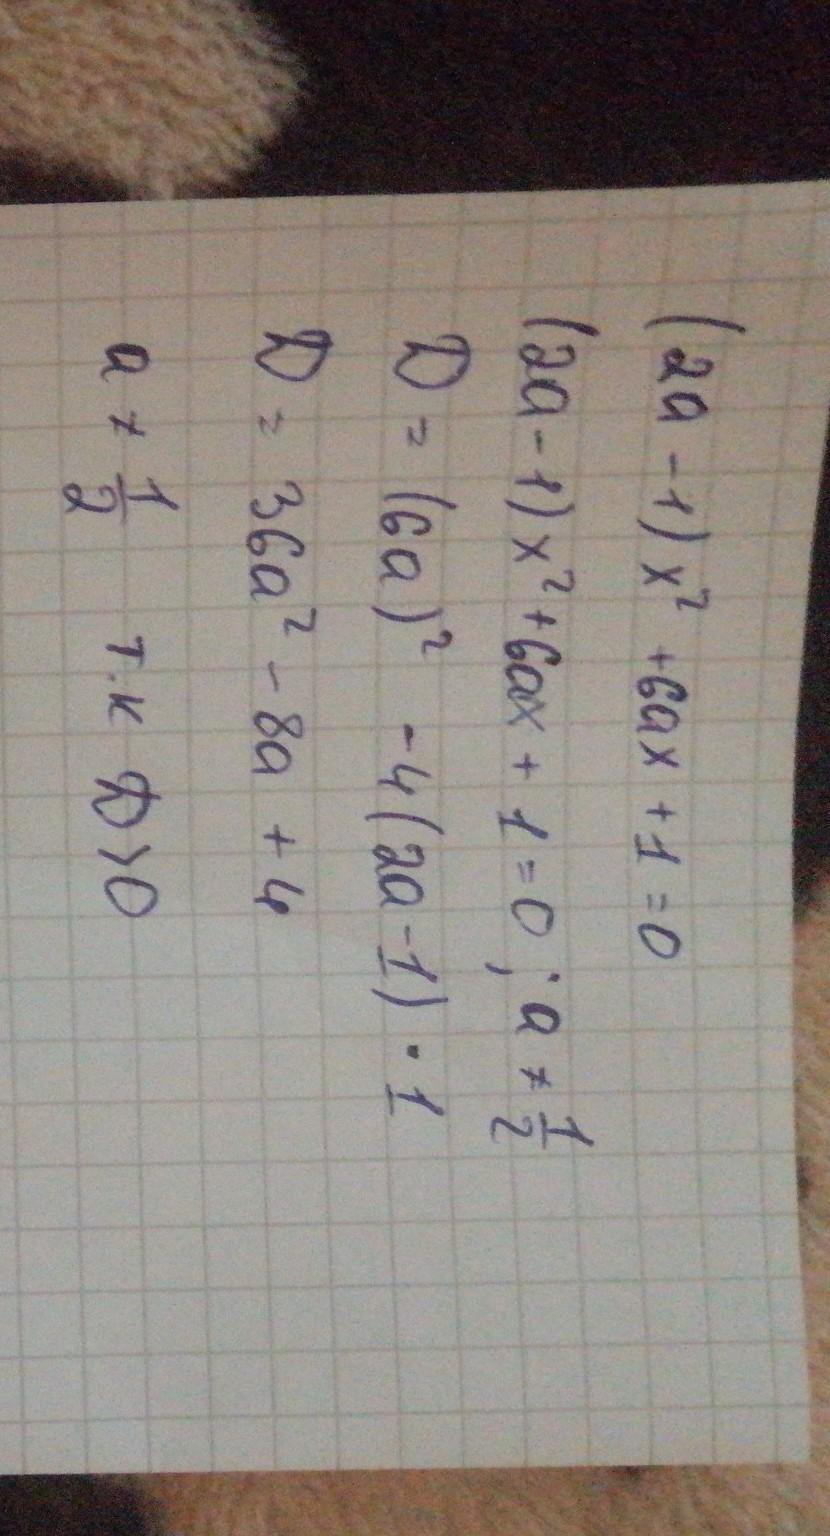 (2a - 1)x² + 6ax + 1 = 0
(2a - 1)x² + 6ax + 1 = 0 ; a ≠ 1/2
D = (6a)² - 4(2a - 1) · 1
D = 36a² - 8a + 4
a ≠ 1/2 т.к D > 0